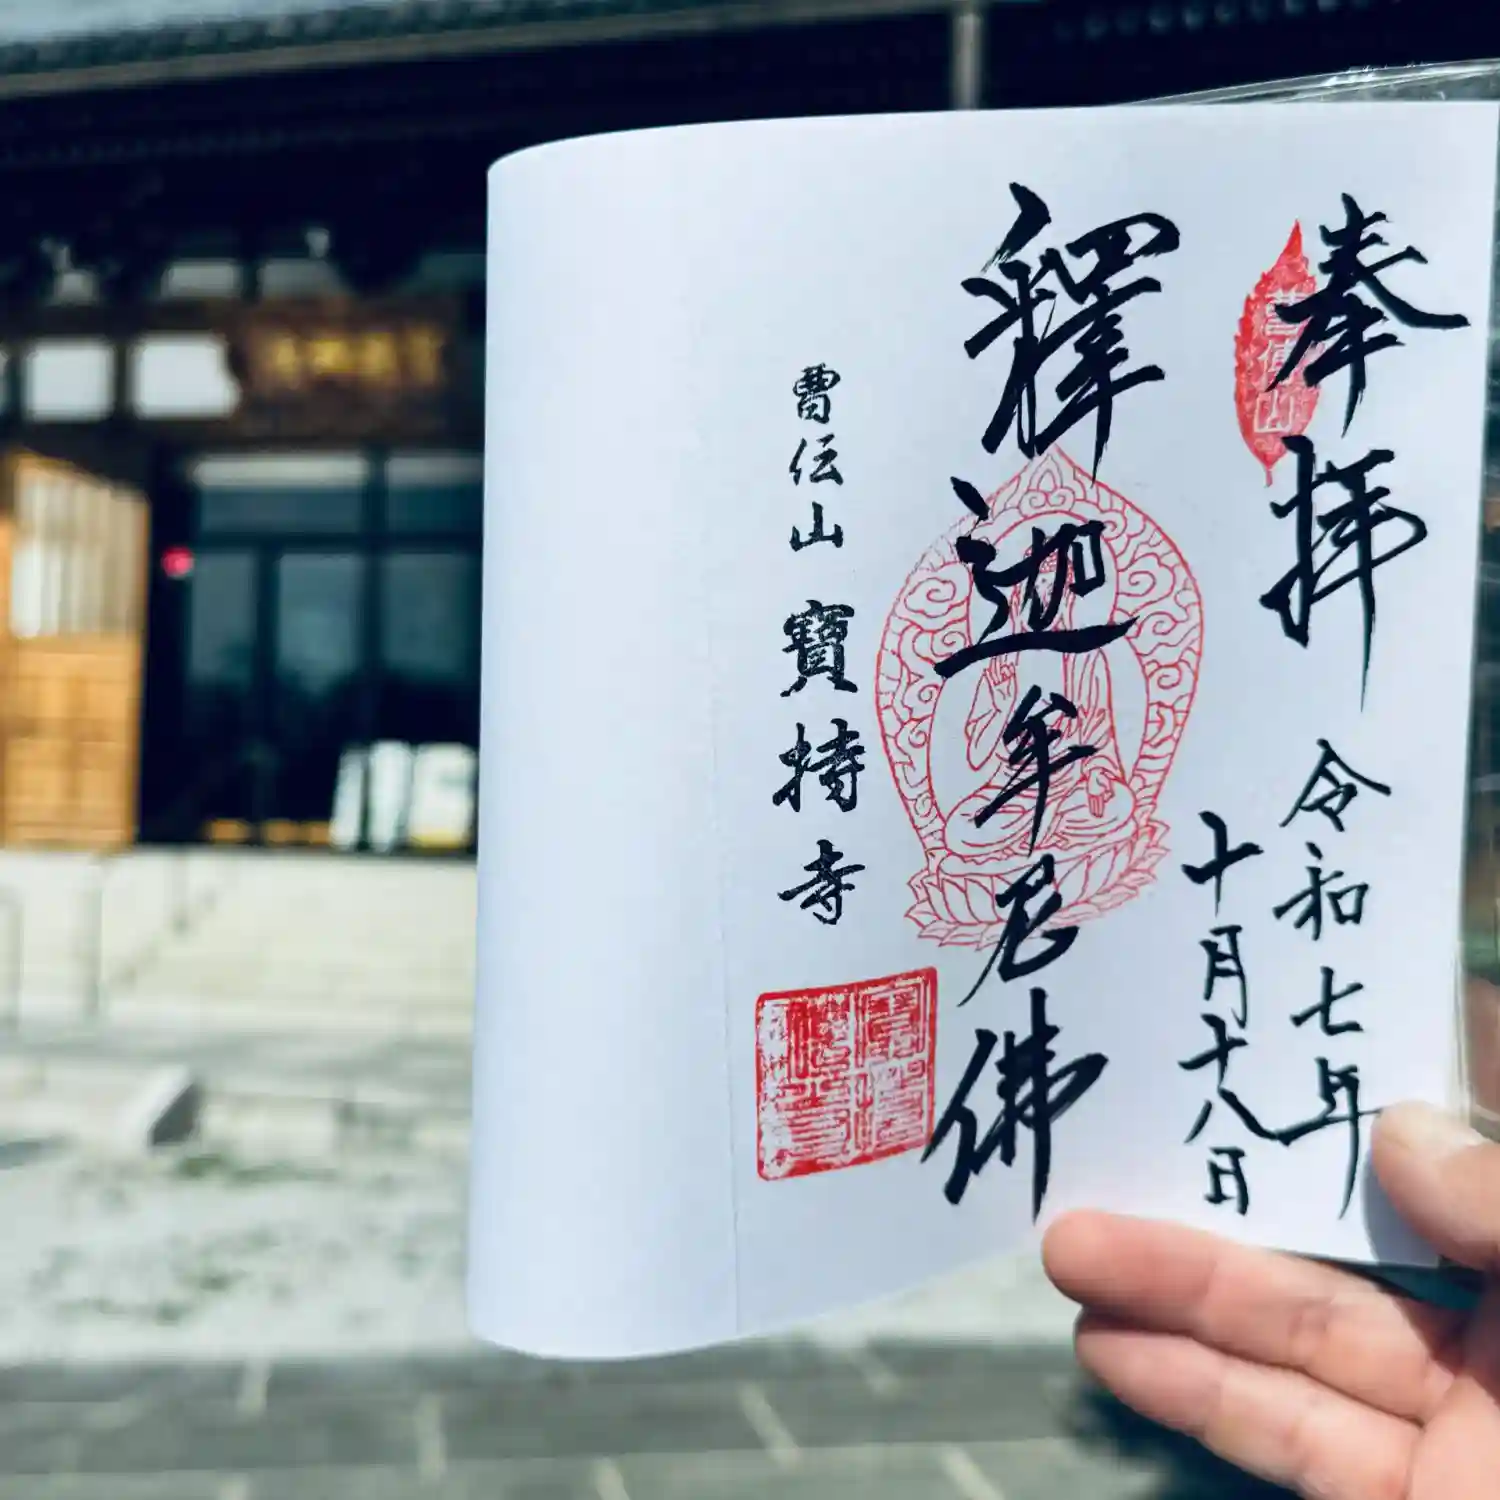 奉拝
曹傳山
令和七年
十月十八日
釋迦牟尼佛
曹伝山 寶持寺